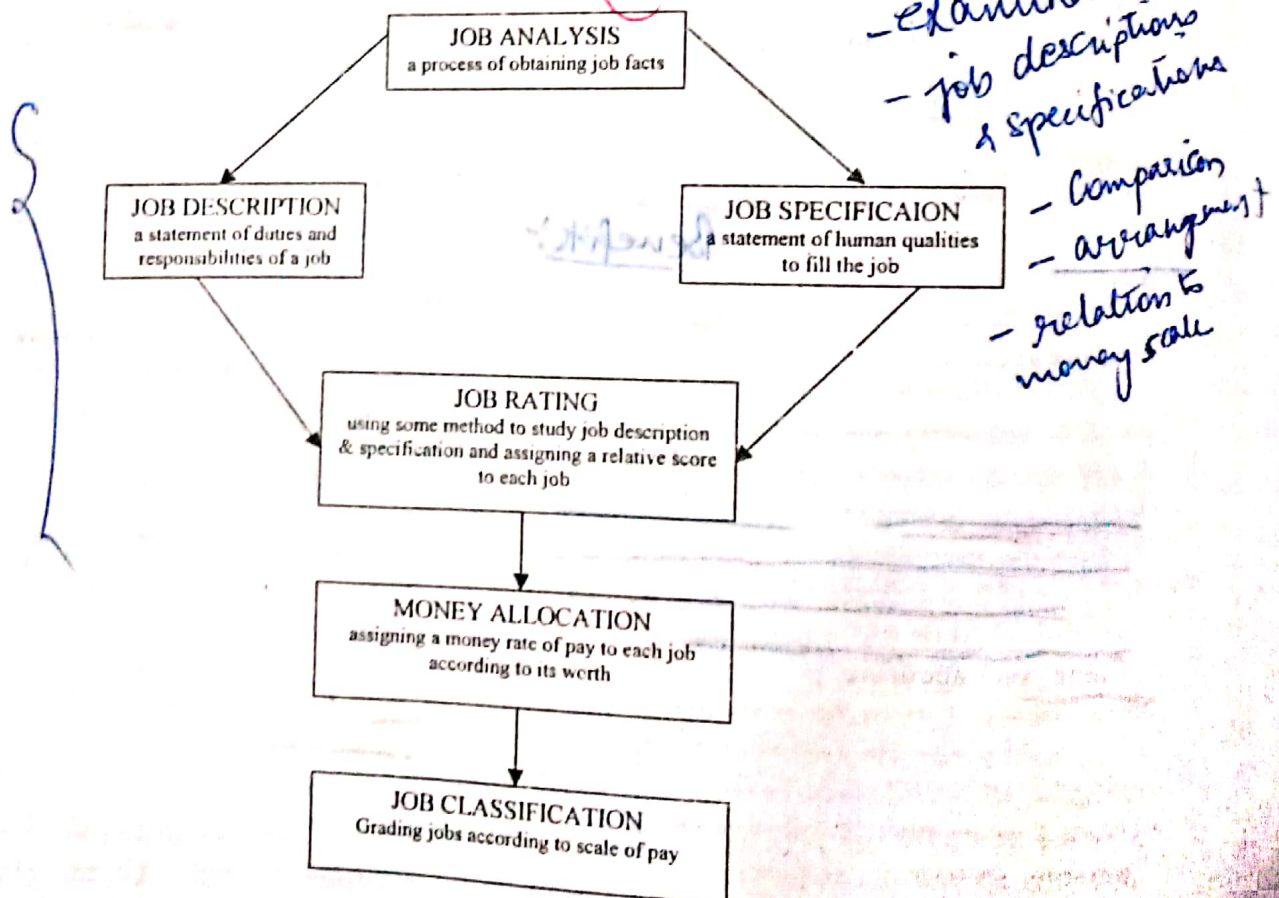 JOB ANALYSIS
a process of obtaining job facts
JOB DESCRIPTION
a statement of duties and
responsibilities of a job
JOB SPECIFICAION
a statement of human qualities
to fill the job
JOB RATING
using some method to study job description
& specification and assigning a relative score
to each job
MONEY ALLOCATION
assigning a money rate of pay to each job
according to its worth
JOB CLASSIFICATION
Grading jobs according to scale of pay
- job descriptions
& specifications
- Comparison
- arrangement
- relation to
money scale